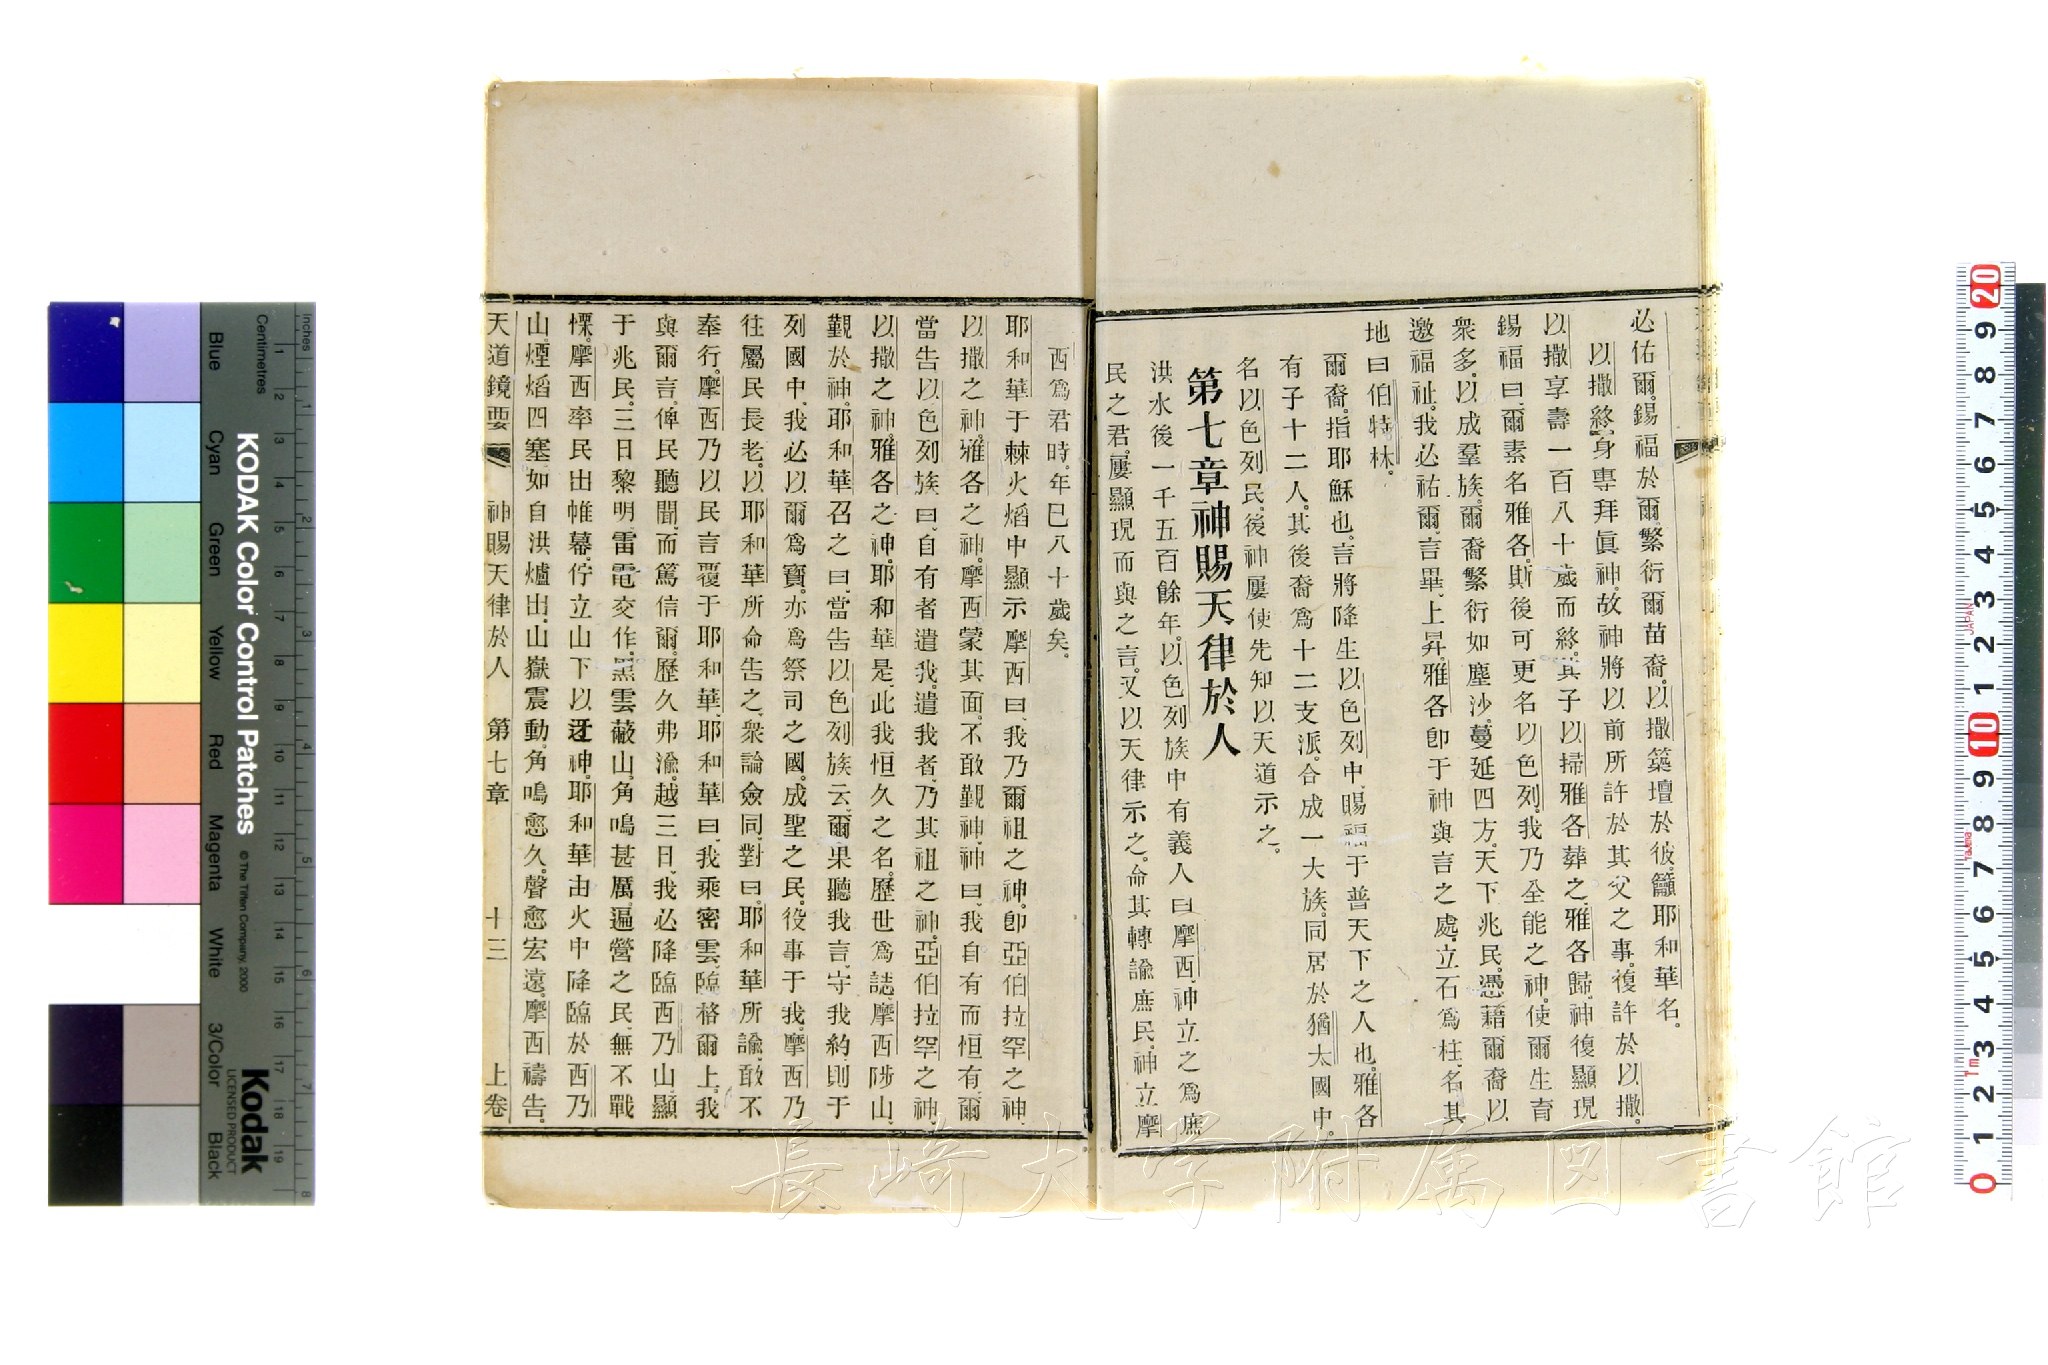 必佑爾。錫福於爾。繁衍爾苗裔。以撒築壇於彼。籲耶和華名。
以撒終身專拜眞神。故神將以前所許於其父之事。復許於以撒。
以撒享壽一百八十歲而終。其子以掃雅各葬之。雅各歸。神復顯現
錫福曰。爾素名雅各。斯後可更名以色列。我乃全能之神。使爾生育
衆多。以成羣族。爾裔繁衍如塵沙。蔓延四方。天下兆民。憑藉爾裔以
邀福祉。我必祐爾。言畢。上昇。雅各卽于神與言之處。立石爲柱。名其
地曰伯特林。
爾裔。指耶穌也。言將降生以色列中。賜福于普天下之人也。雅各
有子十二人。其後裔爲十二支派。合成一大族。同居於猶太國中。
名以色列民。後神屢使先知以天道示之。
第七章神賜天律於人
洪水後一千五百餘年。以色列族中有義人曰摩西。神立之爲庶
民之君。屢顯現而與之言。又以天律示之。命其轉諭庶民。神立摩
西爲君時。年巳八十歲矣。
耶和華于棘火熖中顯示摩西曰。我乃爾祖之神。卽亞伯拉罕之神。
以撒之神。雅各之神。摩西蒙其面。不敢觀神。神曰。我自有而恒有。爾
當告以色列族曰。自有者遣我。遣我者。乃其祖之神。亞伯拉罕之神。
以撒之神。雅各之神。耶和華是。此我恒久之名。歷世爲誌。摩西陟山。
覲於神。耶和華召之曰。當告以色列族云。爾果聽我言。守我約。則于
列國中。我必以爾爲寶。亦爲祭司之國。成聖之民。役事于我。摩西乃
往屬民長老。以耶和華所命告之。衆論僉同。對曰。耶和華所諭。敢不
奉行。摩西乃以民言覆于耶和華。耶和華曰。我乘密雲臨格爾上。我
與爾言。俾民聽聞。而篤信爾。歷久弗渝。越三日。我必降臨西乃山。顯
于兆民。三日黎明。雷電交作。黑雲蔽山。角鳴甚厲。遍營之民。無不戰
慄。摩西率民出帷幕。佇立山下。以迓神。耶和華由火中降臨於西乃
山。煙熖四塞。如自洪爐出。山嶽震動。角鳴愈久。聲愈宏遠。摩西禱告。
天道鏡要 神賜天律於人 第七章 十三 上卷
KODAK Color Control Patches
© The Tiffen Company, 2000
Kodak
LICENSED PRODUCT
Inches
Centimetres
Blue
Cyan
Green
Yellow
Red
Magenta
White
3/Color
Black
長崎大学附属図書館